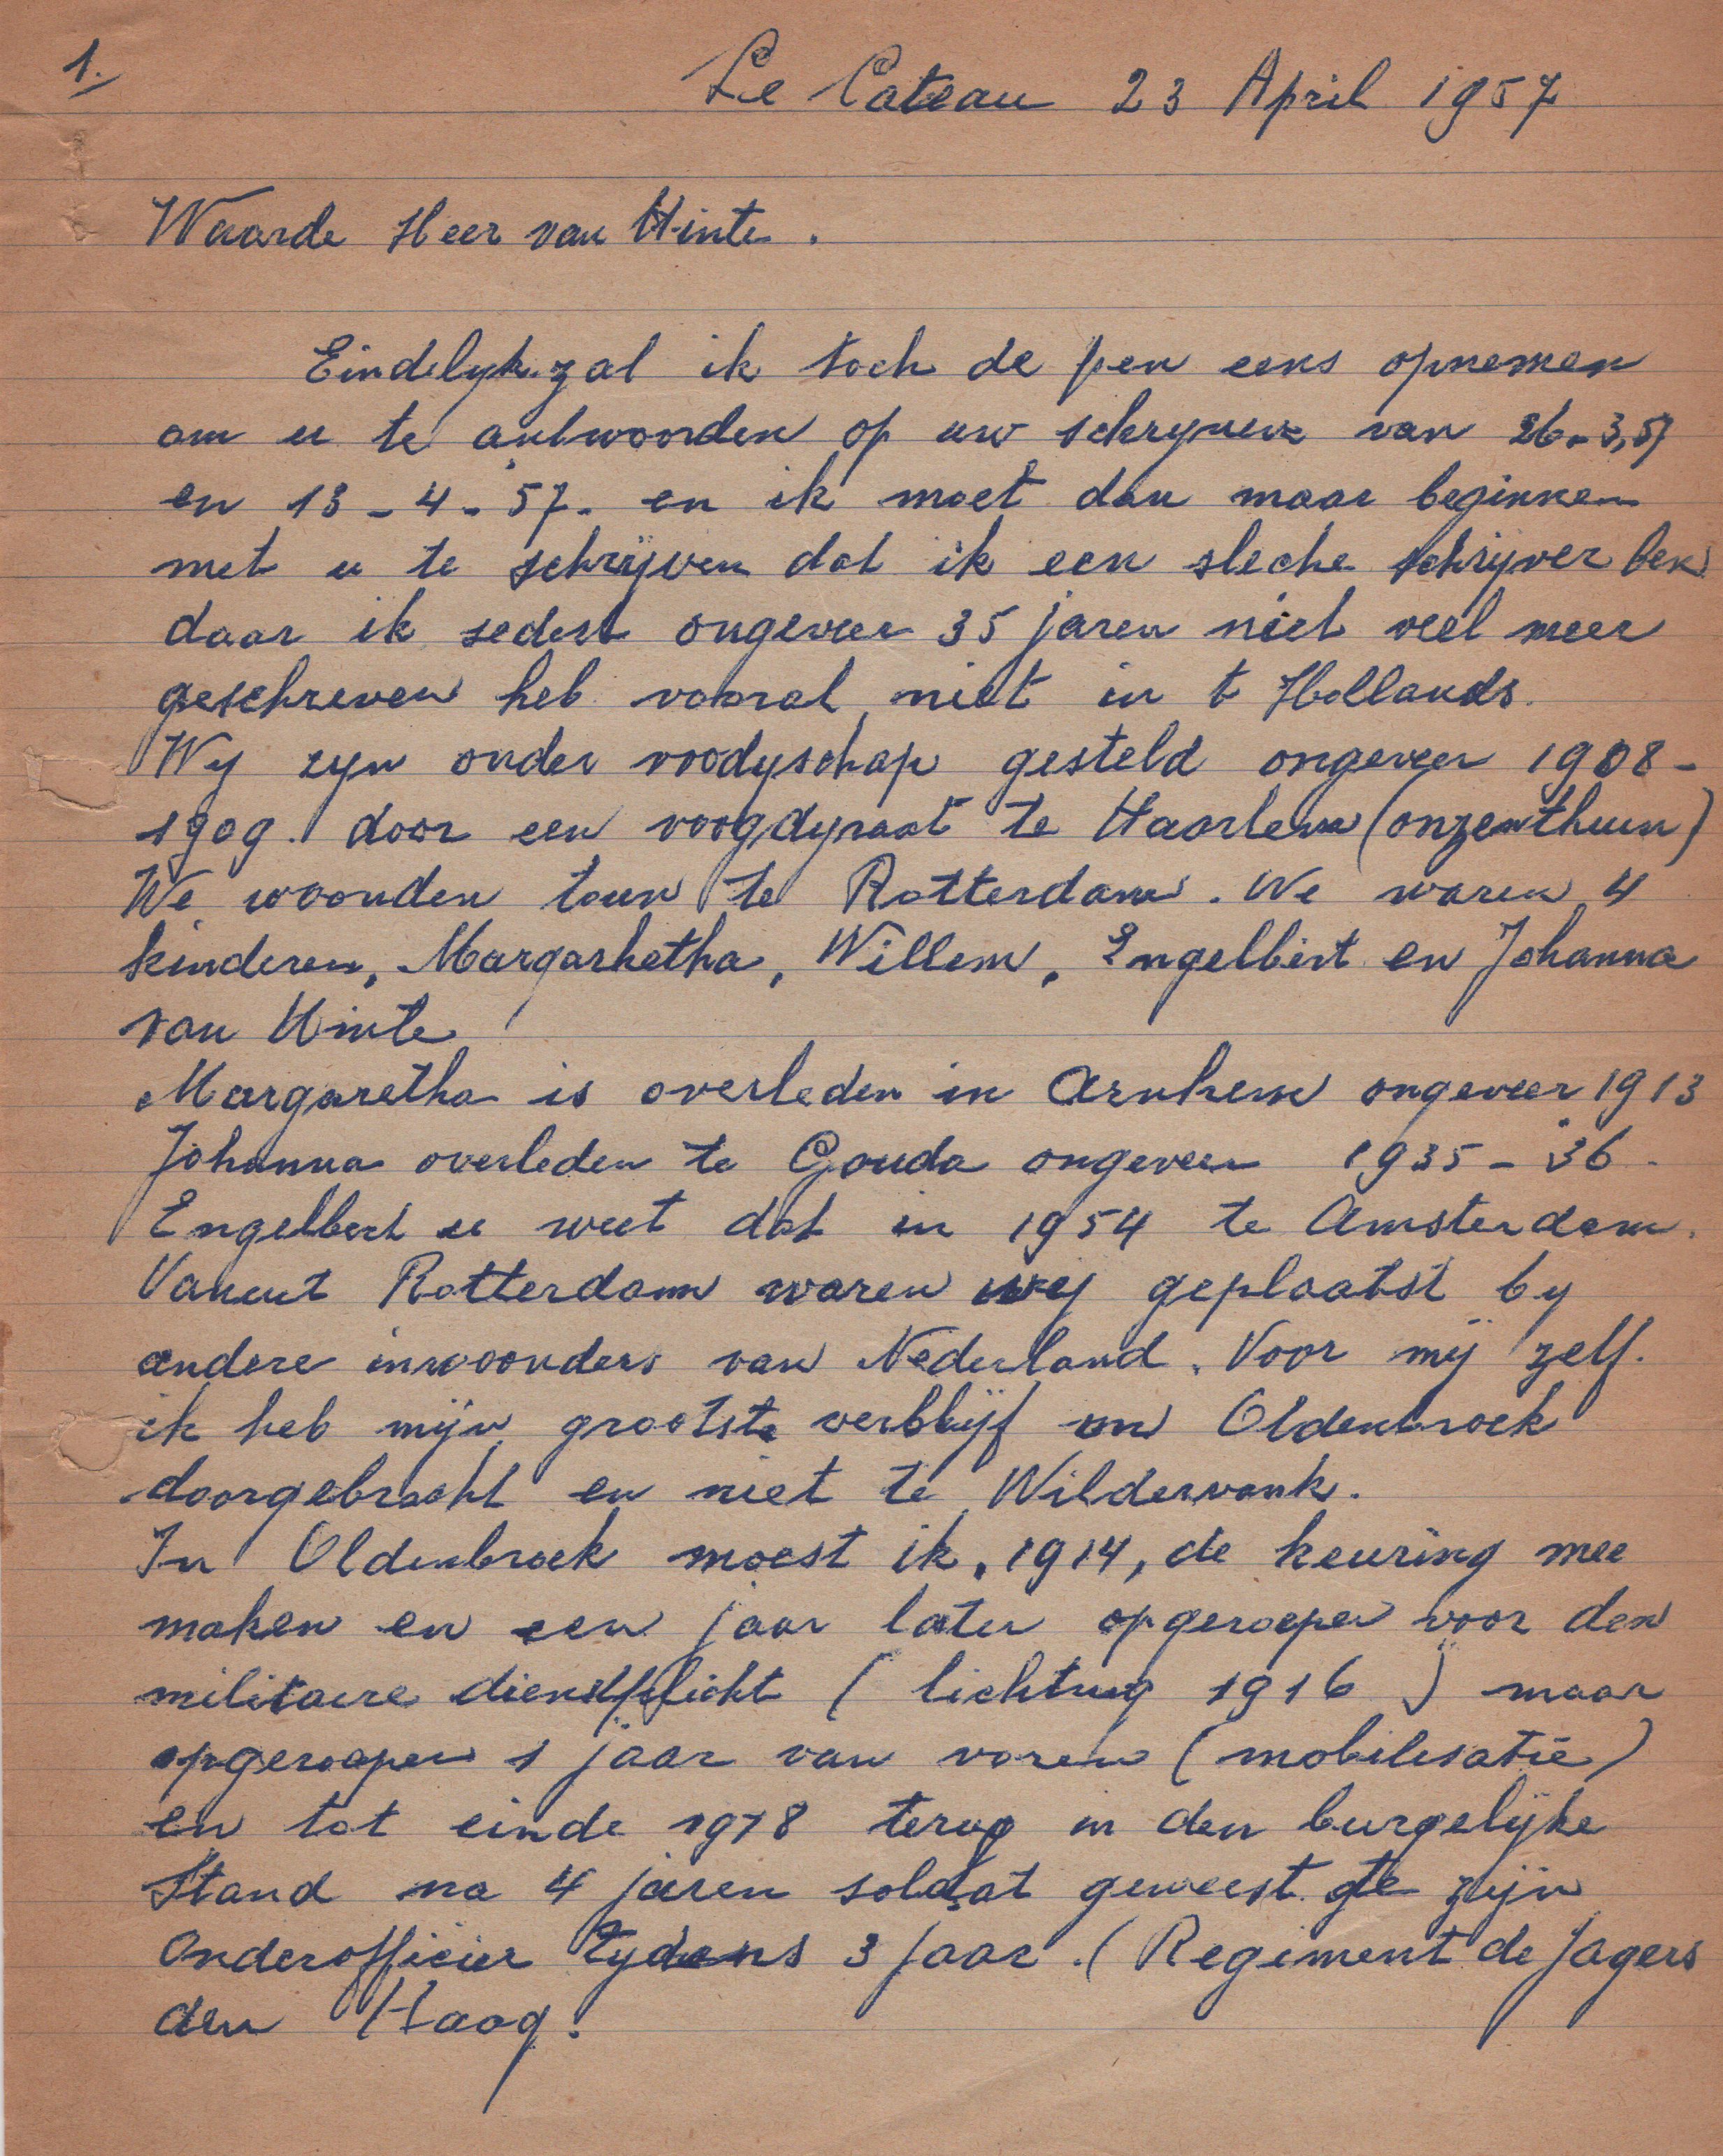 1.
Le Cateau 23 April 1957
Waarde Heer van Hinte.
Eindelyk zal ik toch de pen eens opnemen
om u te antwoorden op uw schryven van 26-3,57
en 13-4-57. en ik moet dan maar beginnen
met u te schrijven dat ik een sleche schrijver ben
daar ik sedert ongeveer 35 jaren niet veel meer
geschreven heb vooral niet in t Hollands.
Wy zyn onder voodyschap gesteld ongeveer 1908-
1909. door een voogdyraat te Haarlem (onzenthuun)
We woonden toen te Rotterdam. We waren 4
kinderen, Margarhetha, Willem, Engelbert en Johanna
van Hinte
Margaretha is overleden in Arnhem ongeveer 1913
Johanna overleden te Gouda ongeveer 1935-36.
Engelbert u weet dat in 1954 te Amsterdam.
Vanuit Rotterdam waren wy geplaatst by
andere inwoonders van Nederland. Voor mij zelf.
ik heb mijn grootste verblijf in Oldenbroek
doorgebracht en niet te Wildervank.
In Oldenbroek moest ik, 1914, de keuring mee
maken en een jaar later opgeroepen voor den
militaire dienstplicht (lichting 1916) maar
opgeroepen 1 jaar van voren (mobilisatie)
en tot einde 1918 terug in den burgelijke
Stand na 4 jaren soldaat geweest te zijn
Onderofficier tydens 3 jaar. (Regiment de Jagers
den Haag.